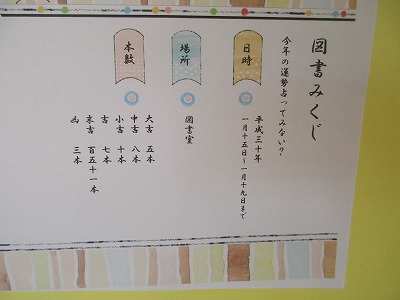 図書みくじ
今年の運勢占ってみない？
日時
平成三十年
一月十五日～一月十九日まで
場所
図書室
本数
大吉 五本
中吉 八本
小吉 十本
吉 七本
末吉 百五十一本
凶 三本